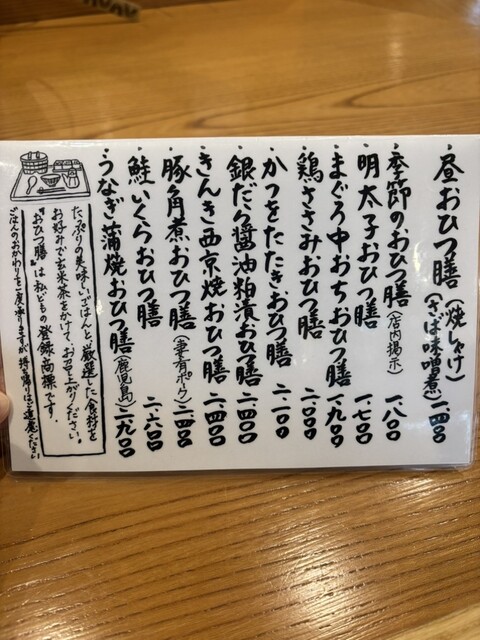 ・昼おひつ膳(焼しゃけ)(さば味噌煮)一.四〇〇
・季節のおひつ膳(店内掲示)一.八〇〇
・明太子おひつ膳 一.七〇〇
・まぐろ中おちおひつ膳 一.九〇〇
・鶏ささみおひつ膳 二.〇〇〇
・かつをたたきおひつ膳 二.一〇〇
・銀だら醤油粕漬おひつ膳 二.四〇〇
・きんき西京焼おひつ膳 二.四〇〇
・豚角煮おひつ膳(妻有ポーク)二.四〇〇
・鮭いくらおひつ膳 二.六〇〇
・うなぎ蒲焼おひつ膳(鹿児島)二.九〇〇
たっぷりの美味しいごはんと、厳選した食材を
お好みで玄米茶をかけて、お召し上がりください。
"おひつ膳"は私どもの登録商標です。
ごはんのおかわりを一度承りますが、持ち帰りはご遠慮ください